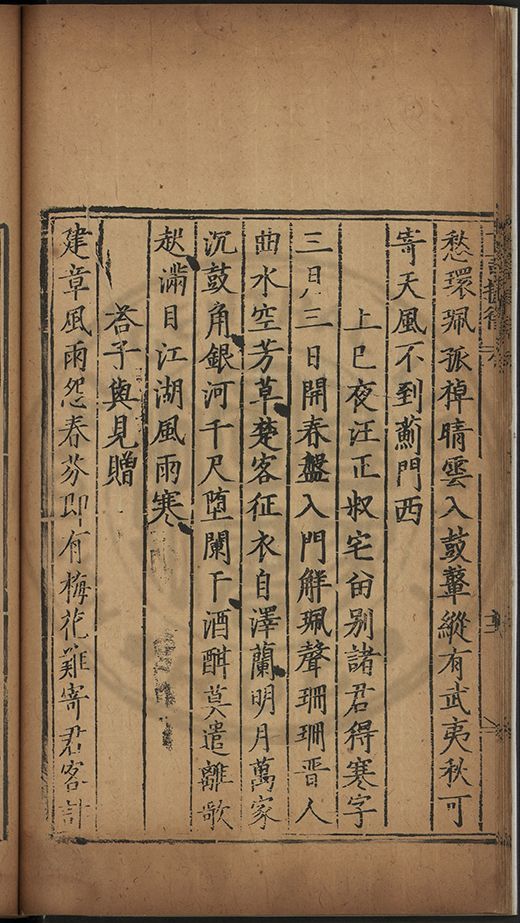 愁環珮孤棹晴雲入鼓鼙縱有武夷秋可
寄天風不到薊門西
上巳夜汪正叔宅畱別諸君得寒字
三月三日開春盤入門觧珮聲珊珊晋人
曲水空芳草楚客征衣自澤蘭明月萬家
沉鼓角銀河千尺堕闌干酒酣莫遣離歌
起滿目江湖風雨寒
荅子與見贈
建章風雨怨春芬即有梅花難寄君客計